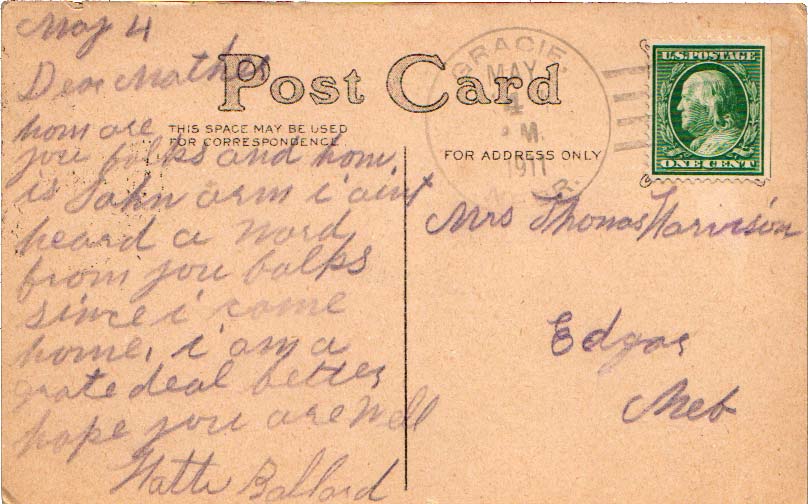 May 4
Dear Mother
how are
you folks and how
is John arm i aint
heard a word
from you folks
since i come
home. i am a
grate deal better
hope you are well
Ballard
Post Card
THIS SPACE MAY BE USED
FOR CORRESPONDENCE
FOR ADDRESS ONLY
GRACIE,
MAY
4
M.
1911
U.S. POSTAGE
ONE CENT
Mrs Thomas Harrison
Edgar
Neb